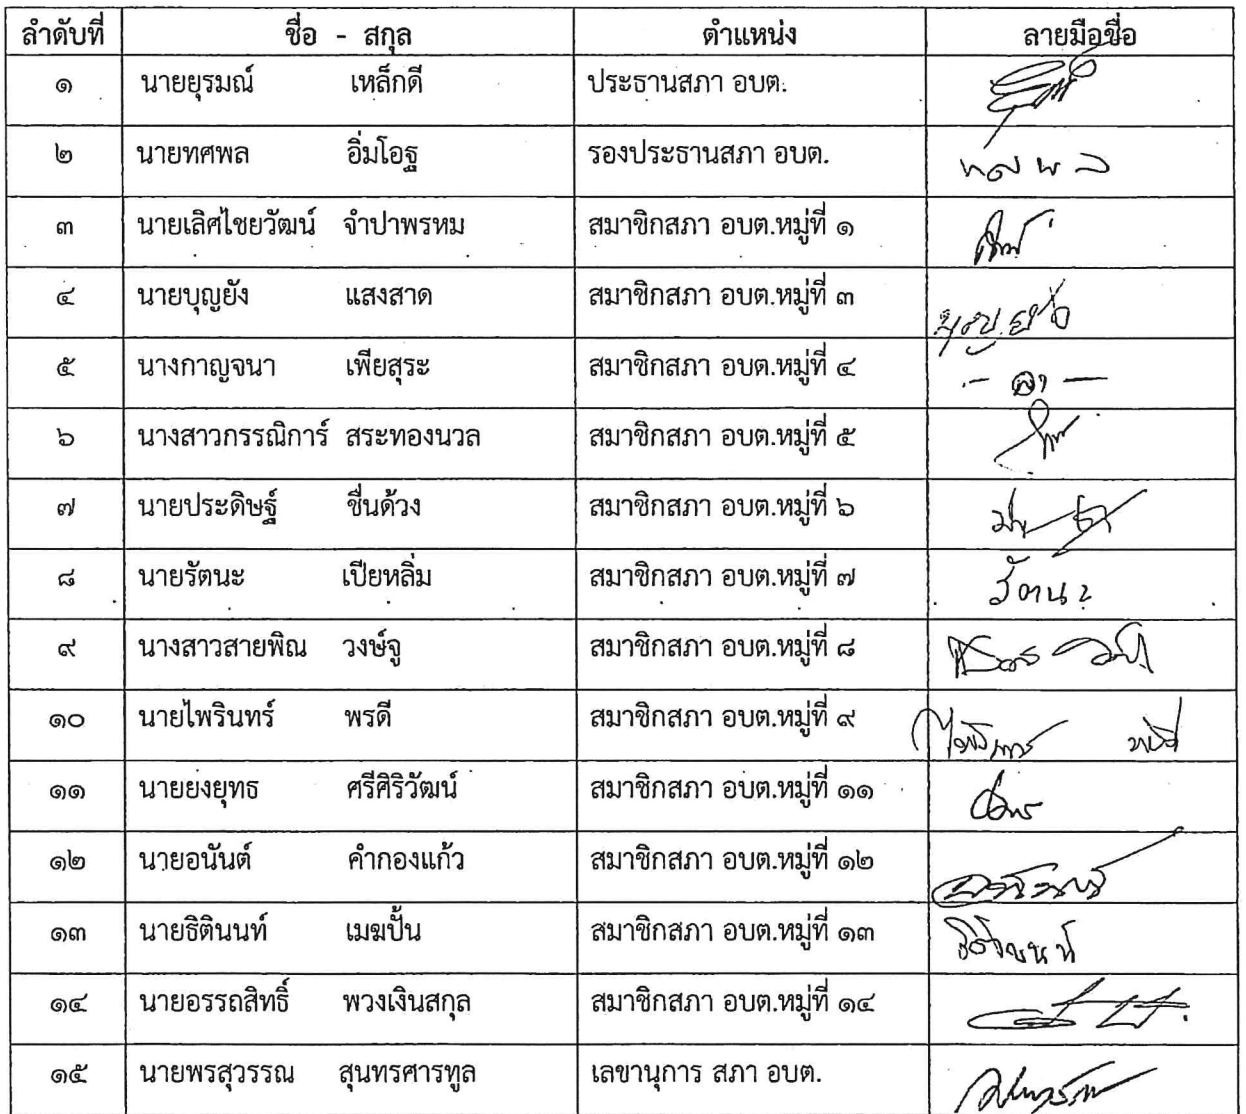 ลำดับที่ ชื่อ - สกุล ตำแหน่ง ลายมือชื่อ
๑ นายยุรมณ์ เหล็กดี ประธานสภา อบต.
๒ นายทศพล อิ่มโอฐ รองประธานสภา อบต. ทศพล
๓ นายเลิศไชยวัฒน์ จำปาพรหม สมาชิกสภา อบต.หมู่ที่ ๑
๔ นายบุญยัง แสงสาด สมาชิกสภา อบต.หมู่ที่ ๓ บุญยัง
๕ นางกาญจนา เพียสุระ สมาชิกสภา อบต.หมู่ที่ ๔ - ลา -
๖ นางสาวกรรณิการ์ สระทองนวล สมาชิกสภา อบต.หมู่ที่ ๕
๗ นายประดิษฐ์ ชื่นด้วง สมาชิกสภา อบต.หมู่ที่ ๖
๘ นายรัตนะ เปียหลิ่ม สมาชิกสภา อบต.หมู่ที่ ๗ รัตนะ
๙ นางสาวสายพิณ วงษ์จู สมาชิกสภา อบต.หมู่ที่ ๘
๑๐ นายไพรินทร์ พรดี สมาชิกสภา อบต.หมู่ที่ ๙ ไพรินทร์ พรดี
๑๑ นายยงยุทธ ศรีศิริวัฒน์ สมาชิกสภา อบต.หมู่ที่ ๑๑
๑๒ นายอนันต์ คำกองแก้ว สมาชิกสภา อบต.หมู่ที่ ๑๒
๑๓ นายธิตินนท์ เมฆปั้น สมาชิกสภา อบต.หมู่ที่ ๑๓ ธิตินนท์
๑๔ นายอรรถสิทธิ์ พวงเงินสกุล สมาชิกสภา อบต.หมู่ที่ ๑๔
๑๕ นายพรสุวรรณ สุนทรศารทูล เลขานุการ สภา อบต.